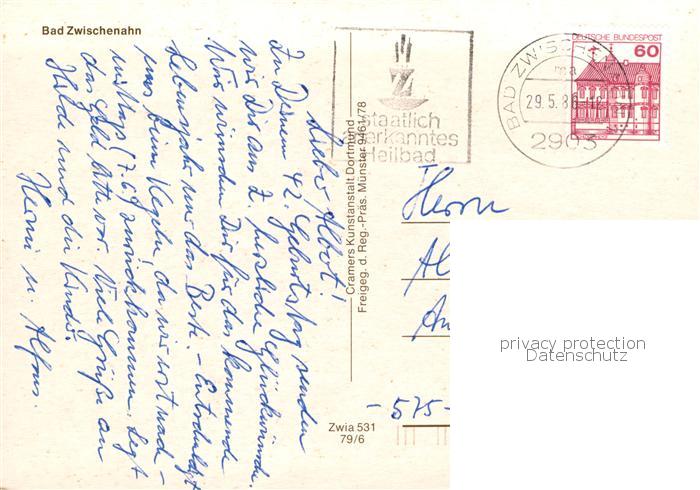 Bad Zwischenahn
Lieber Albert!
Zu Deinem 42. Geburtstag senden
wir Dir aus Z. herzliche Glückwünsche.
Wir wünschen Dir für das kommende
Lebensjahr nur das Beste. - Entschuldigt
uns beim Kegeln, da wir erst nach-
mittags (7.6.) zurückkommen. Legt
das Geld bitte vor. Viele Grüße an
Hilde und die Kinder
Hermi u. Alfons.
Cramers Kunstanstalt Dortmund
Freigeg. d. Reg.-Präs. Münster 9461/78
Zwia 531
79/6
staatlich
anerkanntes
Heilbad
BAD ZWISCHEN
ma
29.5.86-12
2903
DEUTSCHE BUNDESPOST
60
Herrn
Al
An
- 575-
privacy protection
Datenschutz